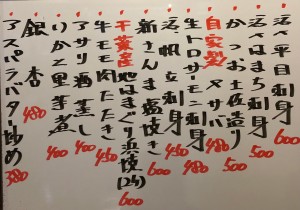 活〆平目刺身 600
活〆はまち刺身 500
かつお土佐造り 500
自家製〆サバ 480
生トロサーモン刺身 480
活帆立刺身 450
新さんま塩焼き 600
千葉産地はまぐり浜焼 600
牛モモ肉たたき 450
アサリ酒蒸し 400
いかと里芋煮 400
銀杏 480
アスパラバター炒め 380